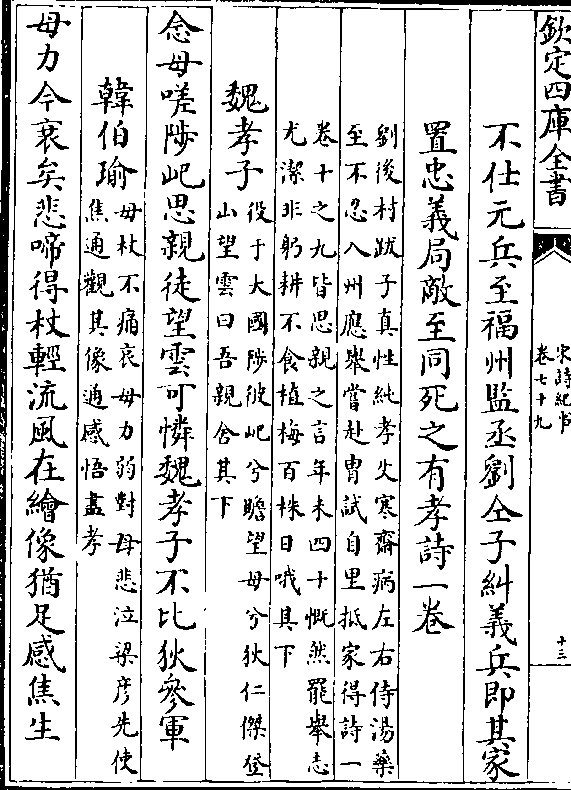 欽定四庫全書
宋詩紀事
卷七十九
十三
不仕元兵至福州監丞劉仝子糾義兵即其家
置忠義局敵至同死之有孝詩一卷
劉後村跋子真性純孝父寒齋病左右侍湯藥
至不忍入州應舉嘗赴胄試自里抵家得詩一
卷十之九皆思親之言年未四十慨然罷舉志
尤潔非躬耕不食植梅百株日哦其下
魏孝子
役于大國陟彼屺兮瞻望母兮狄仁傑登
山望雲曰吾親舍其下
念母嗟陟屺思親徒望雲可憐魏孝子不比狄參軍
韓伯瑜
母杖不痛哀母力弱對母悲泣梁彦先使
焦通觀其像通感悟盡孝
母力今衰矣悲啼得杖輕流風在繪像猶足感焦生